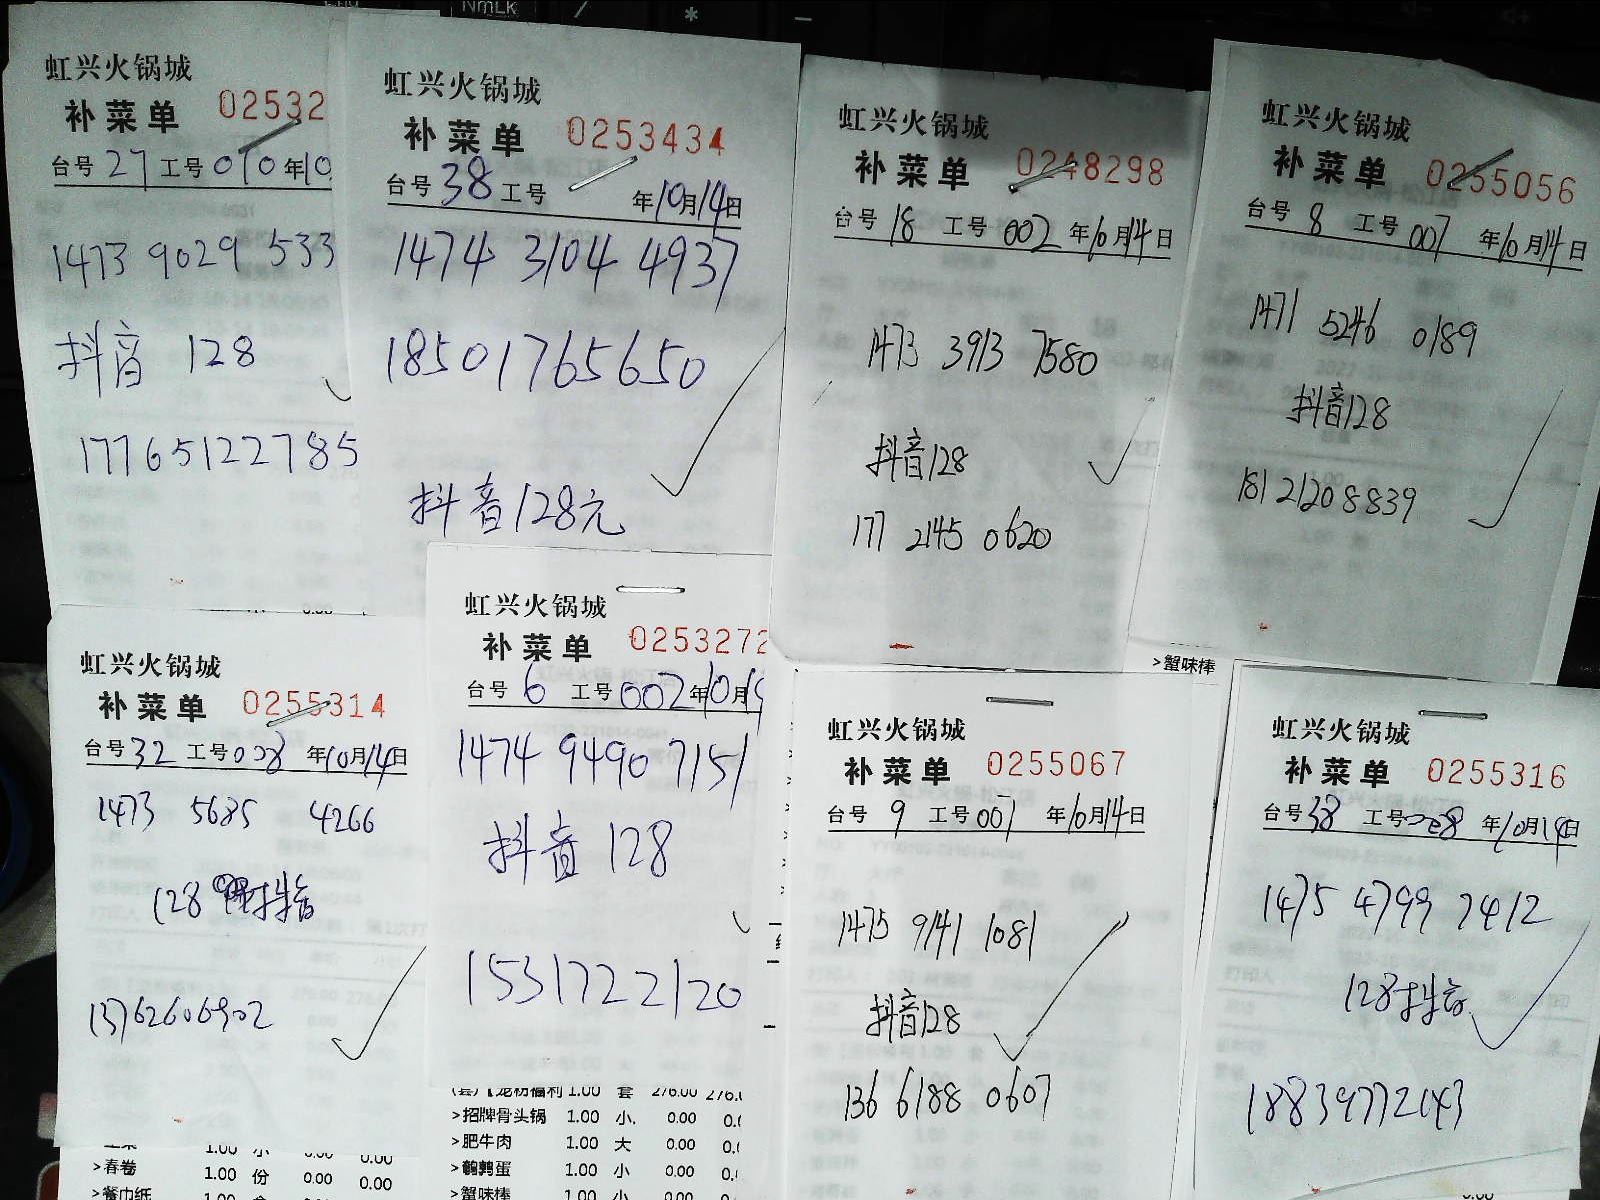 NmLk
虹兴火锅城
补菜单 02532
台号 27 工号 010 年10
1473 9029 533
抖音 128
17765122785
虹兴火锅城
补菜单 0253434
台号 38 工号 年10月14日
1474 3104 4937
18501765650
抖音128元
虹兴火锅城
补菜单 0248298
台号 18 工号 002 年10月14日
1473 3913 7580
抖音128
177 2145 0620
虹兴火锅城
补菜单 0255056
台号 8 工号 007 年10月14日
1471 5246 0189
抖音128
181 2120 8839
虹兴火锅城
补菜单 0255314
台号 32 工号 008 年10月14日
1473 5685 4266
128 抖音
13762606902
虹兴火锅城
补菜单 0253272
台号 6 工号 002 年10月
1474 9490 7151
抖音 128
15317222120
>招牌骨头锅 1.00 小. 0.00 0.
>肥牛肉 1.00 大 0.00 0.
>鹌鹑蛋 1.00 小 0.00 0.
>蟹味棒 1.00 小 0.00
>蟹味棒
虹兴火锅城
补菜单 0255067
台号 9 工号 007 年10月14日
1475 9141 1081
抖音128
136 6188 0607
虹兴火锅城
补菜单 0255316
台号 38 工号 008 年10月14日
1475 4799 7412
128抖音
18839772143
>春卷 1.00 份 0.00 0.00
>餐巾纸 1.00